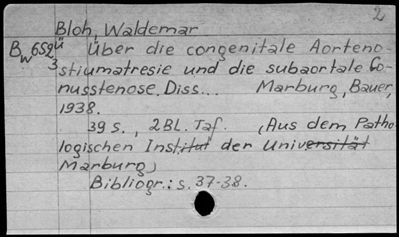 2
Bloh, Waldemar
Bw 652ü Über die congenitale Aorteno-
3 stiumatresie und die subaortale Co-
nusstenose. Diss... Marburg, Bauer,
1938.
39 S., 2 BL. Taf. (Aus dem Patho-
logischen Institut der Universität
Marburg)
Bibliogr.: s. 37-38.